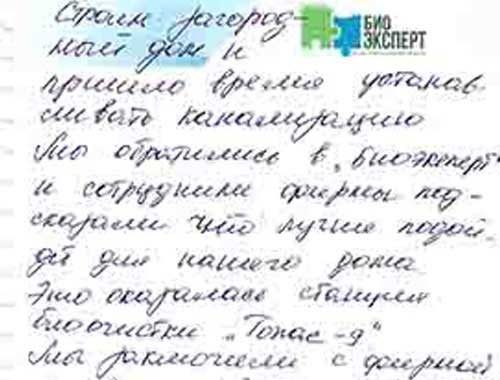 Строим загород-
БИО
ЭКСПЕРТ
ный дом и
пришло время устанав
ливать канализацию
Мы обратились в „Биоэксперт“
и сотрудники фирмы под-
сказали что лучше подой-
дёт для нашего дома
Это оказалась станция
биоочистки „Топас-9“
Мы заключили с фирмой